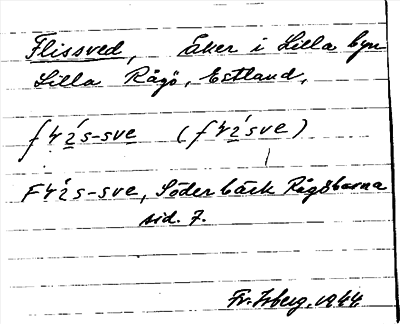 Flissved, Åker i Lilla byn
Lilla Rågö, Estland,
sve sve
sve, Söderbäck Rågöborna
sid. 7.
Fr. Isberg. 1944